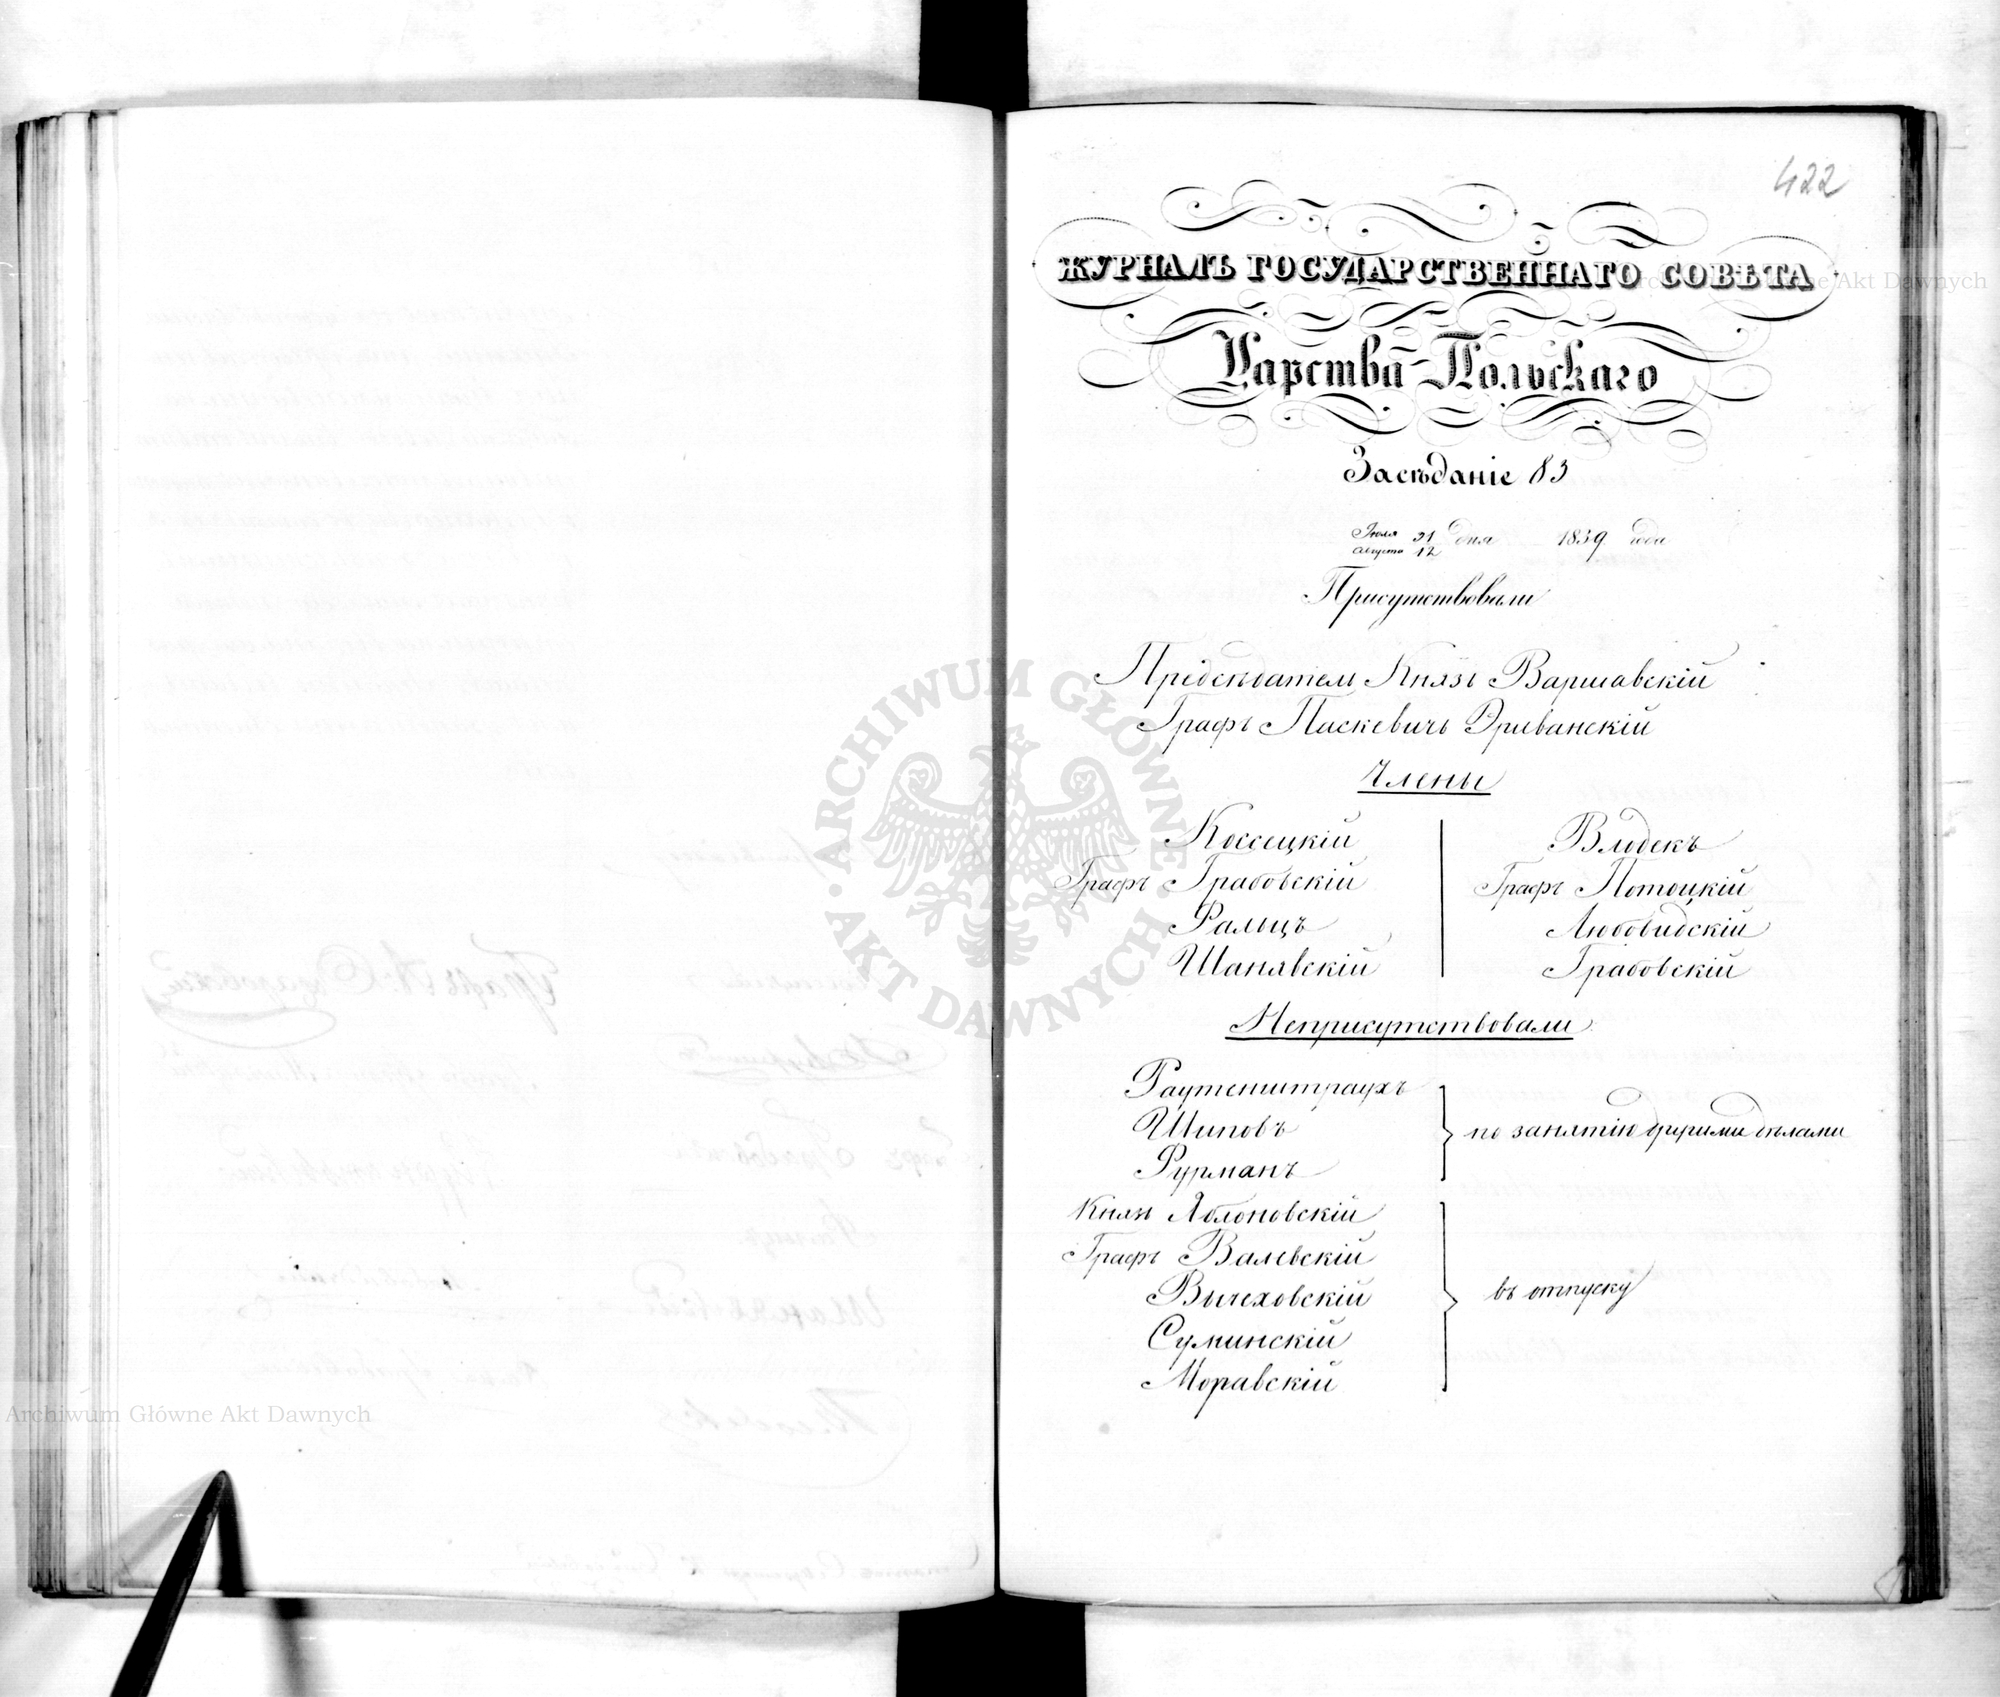 422
ЖУРНАЛЪ ГОСУДАРСТВЕННАГО СОВѢТА
Царства Польскаго
Засѣданіе 83
Іюля 31 дня 1839 года
Августа 12
Присутствовали
Предсѣдатель Князь Варшавскій
Графъ Паскевичь Эриванскій
Члены
Коссецкій
Графъ Грабовскій
Фальцъ
Шанявскій
Влодекъ
Графъ Потоцкій
Любовидскій
Грабовскій
Неприсутствовали
Раутенштраухъ
Шиповъ
Фурманъ
по занятію другими дѣлами
Князь Яблоновскій
Графъ Валевскій
Вычеховскій
Суминскій
Моравскій
въ отпуску
ARCHIWUM GŁÓWNE AKT DAWNYCH
Archiwum Główne Akt Dawnych
Archiwum Główne Akt Dawnych